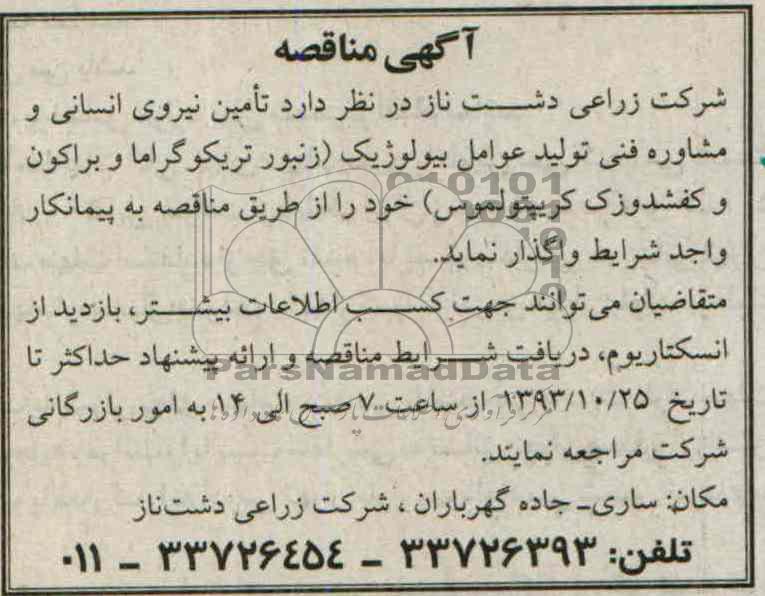 آگهی مناقصه
شرکت زراعی دشت ناز در نظر دارد تأمین نیروی انسانی و
مشاوره فنی تولید عوامل بیولوژیک (زنبور تریکوگراما و براکون
و کفشدوزک کریپتولموس) خود را از طریق مناقصه به پیمانکار
واجد شرایط واگذار نماید.
متقاضیان می‌توانند جهت کسب اطلاعات بیشتر، بازدید از
انسکتاریوم، دریافت شرایط مناقصه و ارائه پیشنهاد حداکثر تا
تاریخ ۱۳۹۳/۱۰/۲۵ از ساعت ۷ صبح الی ۱۴ به امور بازرگانی
شرکت مراجعه نمایند.
مکان: ساری- جاده گهرباران ، شرکت زراعی دشت‌ناز
تلفن: ۳۳۷۲۶۳۹۳ - ۳۳۷۲۶٤٥٤ - ۰۱۱
ParsNamadData